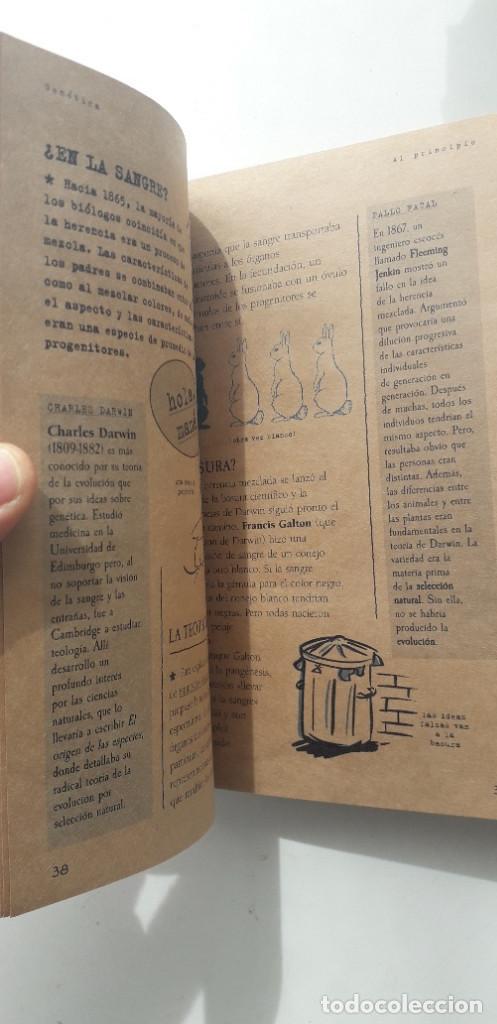 Genética
¿EN LA SANGRE?
★ Hacia 1865, la mayoría de
los biólogos coincidía en que
la herencia era un proceso de
mezcla. Las características de
los padres se combinaban
como al mezclar colores,
el aspecto y las características
eran una especie de promedio
progenitores.
CHARLES DARWIN
Charles Darwin
(1809-1882) es más
conocido por su teoría
de la evolución que
por sus ideas sobre
genética. Estudió
medicina en la
Universidad de
Edimburgo pero, al
no soportar la visión
de la sangre y las
entrañas, fue a
Cambridge a estudiar
teología. Allí
desarrolló un
profundo interés
por las ciencias
naturales, que lo
llevaría a escribir El
origen de las especies,
donde detallaba su
radical teoría de la
evolución por
selección natural.
hola,
LA TEORÍ
38
Al principio
que la sangre transportaba
a los órganos
En la fecundación, un
se fusionaba con un óvulo
de los progenitores se
entre sí.
¡otra vez blanco!
SURA?
herencia mezclada se lanzó al
de la basura científico y la
de Darwin siguió pronto el
camino. Francis Galton (que
de Darwin) hizo una
de sangre de un conejo
a otro blanco. Si la sangre
la gémula para el color negro,
del conejo blanco tendrían
negras. Pero todas nacieron
Galton
la pangénesis,
llevar
sangre»
y son
FALLO FATAL
En 1867, un
ingeniero escocés
llamado Fleeming
Jenkin mostró un
fallo en la idea
de la herencia
mezclada. Argumentó
que provocaría una
dilución progresiva
de las características
individuales
de generación en
generación. Después
de muchas, todos los
individuos tendrían el
mismo aspecto. Pero,
resultaba obvio que
las personas eran
distintas. Además,
las diferencias entre
los animales y entre
las plantas eran
fundamentales en la
teoría de Darwin. La
variedad era la
materia prima
de la selección
natural. Sin ella,
no se habría
producido la
evolución.
las ideas
falsas van
a la
basura
todocoleccion.net